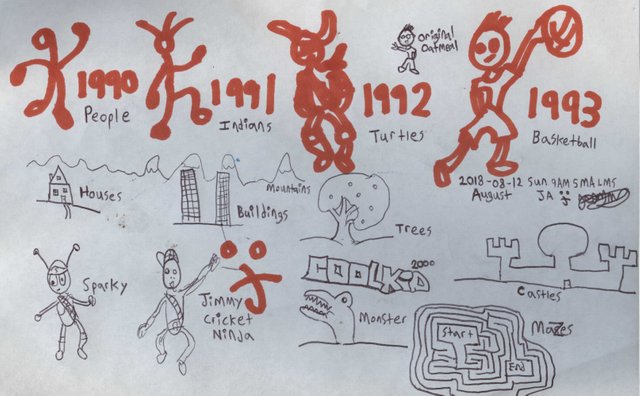 Original
Oatmeal
1990
People
1991
Indians
1992
Turtles
1993
Basketball
2018-08-12 Sun 9AM SMALMS
August JA
Houses
Buildings
Mountains
Trees
Castles
Sparky
Jimmy
Cricket
Ninja
COOLKID
2000
Monster
Mazes
Start
End